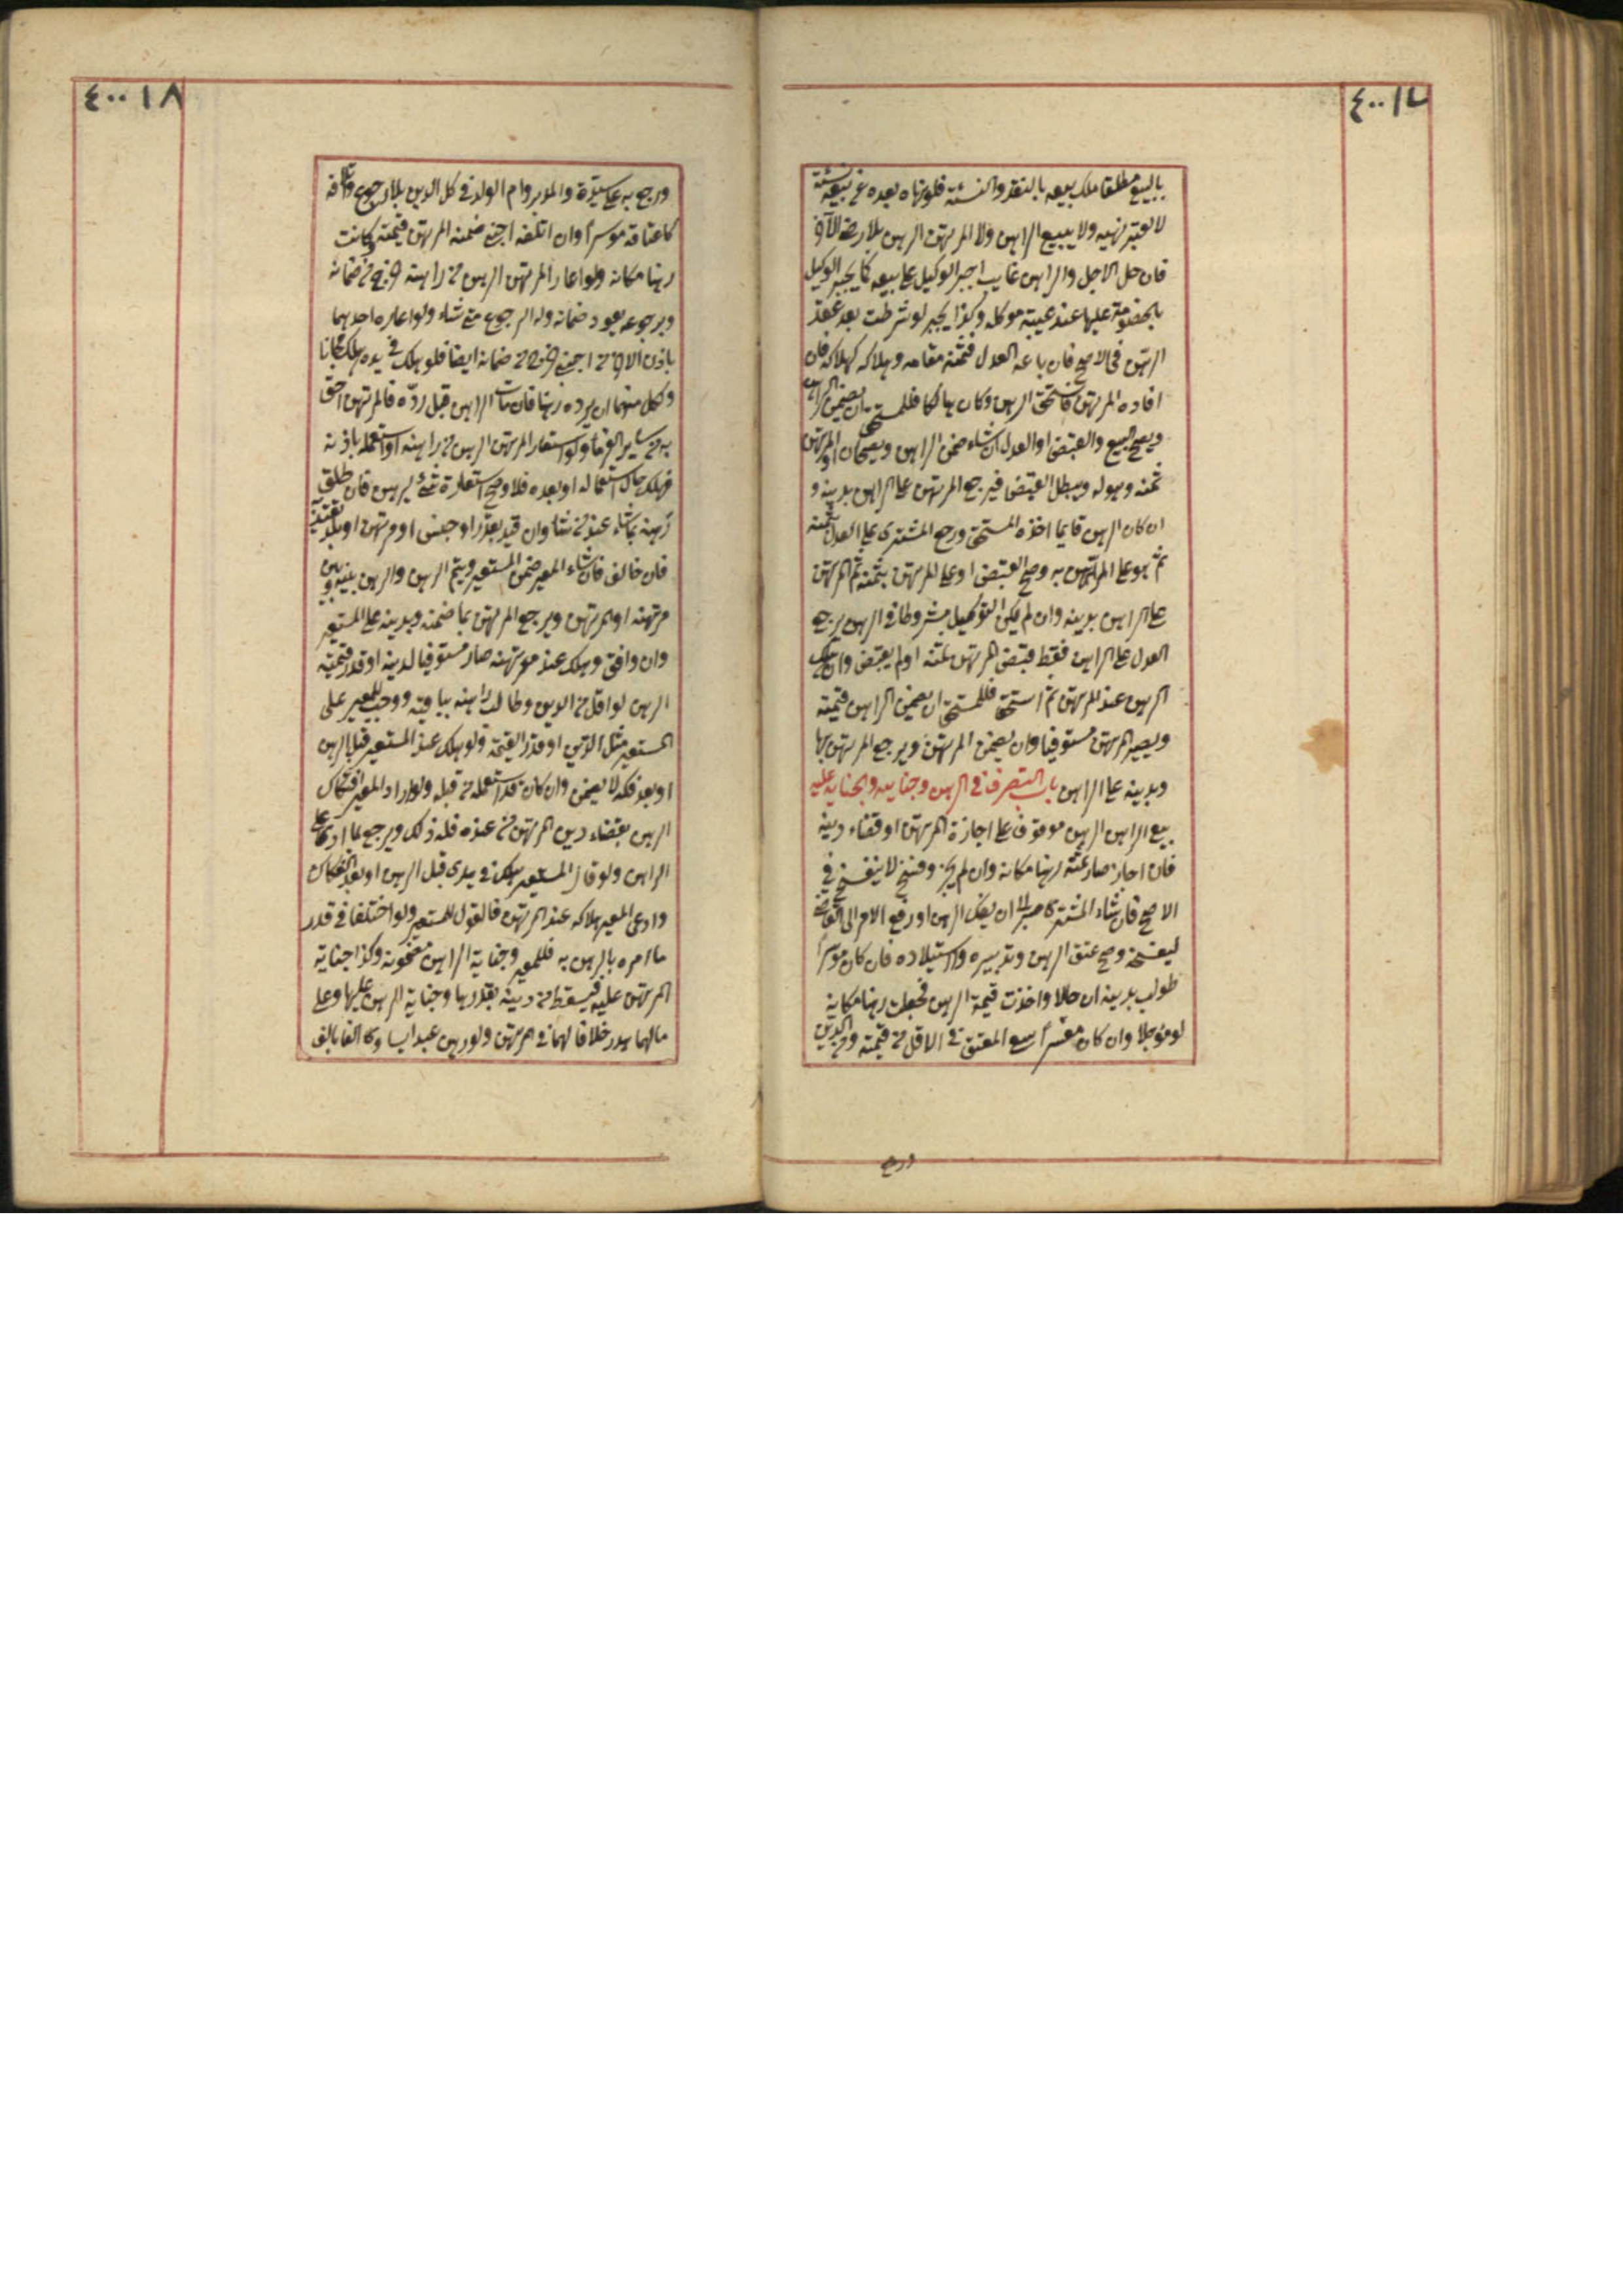 ٤٠٠١٧
بالبيع مطلقا ملك بيعه بالنقد والنسئة فلو نهاه بعده عن بيعه نسئة
لا يعتبر نهيه ولا يبيع الراهن ولا المرتهن الرهن بلا رضى الآخر
فان حل الاجل والراهن غايب اجبر الوكيل على بيعه كما يجبر الوكيل
بالخصومة عليها عند غيبته موكله وكذا يجبر لو شرطت بعد عقد
الرهن في الاصح فان باعه العدل فثمنه مقامه وهلاكه كهلاكه فان
افاده المرتهن فاستحق الرهن وكان هالكا فللمستحق ان يضمن الراهن
ويصح البيع والقبض او العدل ان شاء ضمن الراهن ويصحان او المرتهن
ثمنه وهو له ويبطل القبض فيرجع المرتهن على الراهن بدينه و
ان كان الرهن قايما اخذه المستحق ورجع المشترى على العدل بثمنه
ثم هو على الراهن به وصح القبض او على المرتهن بثمنه ثم المرتهن
على الراهن بدينه وان لم يكن التوكيل مشروطا في الرهن يرجع
العدل على الراهن فقط قبض المرتهن ثمنه او لم يقبض وان هلك
الرهن عند المرتهن ثم استحق فللمستحق ان يضمن الراهن قيمته
ويصير المرتهن مستوفيا وان يضمن المرتهن ويرجع المرتهن بها
وبدينه على الراهن باب التصرف في الرهن وجنايته والجناية عليه
بيع الراهن الرهن موقوف على اجازة المرتهن او قضاء دينه
فان اجاز صار ثمنه رهنا مكانه وان لم يجز وفسخ لا ينفسخ في
الاصح فان شاء المشترى صبر الى ان يفك الرهن او رفع الامر الى القاضى
ليفسخه وصح عتق الرهن وتدبيره واستيلاده فان كان موسرا
طولب بدينه ان حالا واخذت قيمة الرهن فجعلت رهنا مكانه
لو مؤجلا وان كان معسرا سعى المعتق في الاقل من قيمته ومن الدين
ورجع
٤٠٠١٨
ورجع به على سيده والمدبر وام الولد في كل الدين بلا رجوع واتلافه
كاعتاقه موسرا وان اتلفه اجنبى ضمنه المرتهن قيمته وكانت
رهنا مكانه ولو اعار المرتهن الرهن من راهنه خرج من ضمانه
وبرجوعه يعود ضمانه وله الرجوع متى شاء ولو اعاره احدهما
باذن الاخر من اجنبى خرج من ضمانه ايضا فلو هلك في يده هلك مجانا
ولكل منهما ان يرده رهنا فان مات الراهن قبل رده فالمرتهن احق
به من ساير الغرماء ولو استعار المرتهن الرهن من راهنه او استعمله باذنه
فهلك حال استعماله او بعده فلا وصح استعارة شئ ليرهن فان اطلق
رهنه بما شاء عند من شاء وان قيد بقدر او جنس او مرتهن او بلد تقيد به
فان خالف فان شاء المعير ضمن المستعير ويتم الرهن والرهن بينه وبين
مرتهنه او المرتهن ويرجع المرتهن بما ضمنه وبدينه على المستعير
وان وافق وهلك عند مرتهنه صار مستوفيا لدينه او قدر قيمته
الرهن لو اقل من الدين وطالب راهنه بباقيه ووجب للمعير على
المستعير مثل الدين او قدر القيمة ولو هلك عند المستعير قبل الرهن
او بعد فكه لا يضمن وان كان قد استعمله من قبله ولو اراد المعير افتكاك
الرهن بقضاء دين المرتهن من عنده فله ذلك ويرجع بما ادى على
الراهن ولو قال المستعير هلك في يدى قبل الرهن او بعد الفكاك
وادعى المعير هلاكه عند المرتهن فالقول للمستعير ولو اختلفا في قدر
ما امره بالرهن به فللمعير وجناية الراهن مضمونة وكذا جناية
المرتهن عليه فيسقط من دينه بقدرها وجناية الرهن عليهما وعلى
مالهما هدر خلافا لهما في المرتهن ولو رهن عبدا يساوى الفا بالف